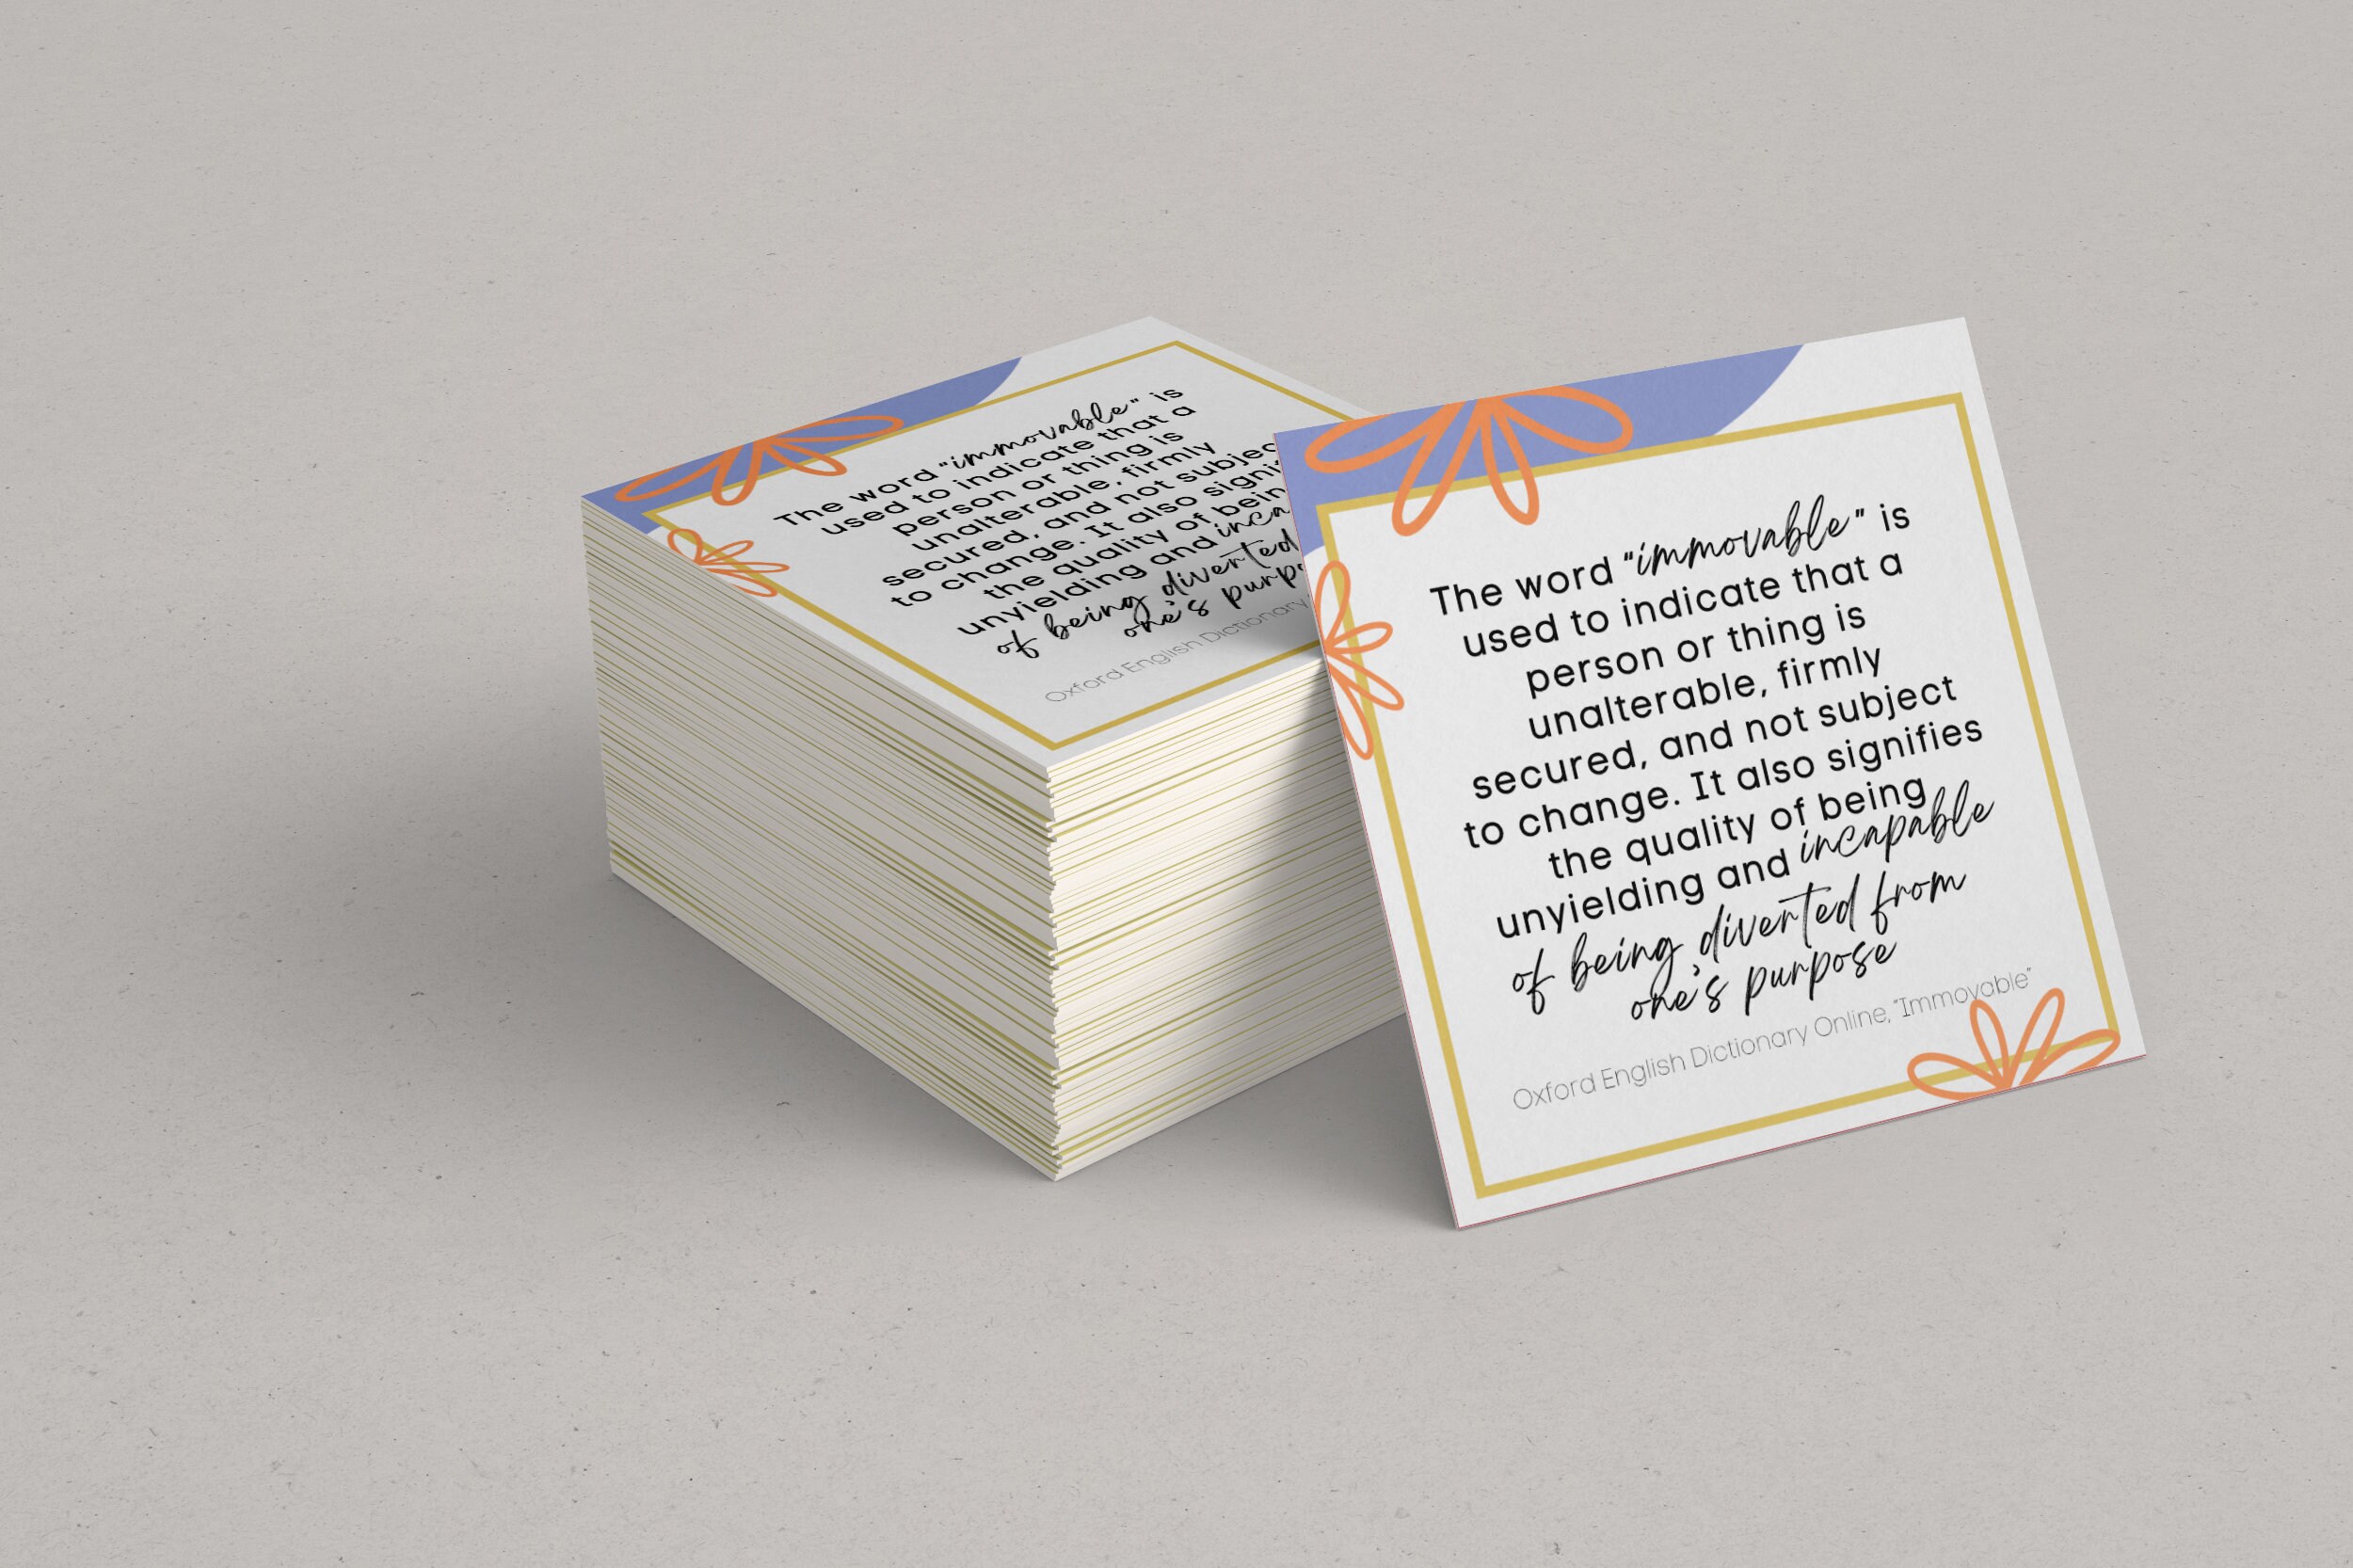 The word "immovable" is
used to indicate that a
person or thing is
unalterable, firmly
secured, and not subject
to change. It also signifies
the quality of being
unyielding and inca
of being diverted
one's purpo
Oxford English Dictionary
The word "immovable" is
used to indicate that a
person or thing is
unalterable, firmly
secured, and not subject
to change. It also signifies
the quality of being
unyielding and incapable
of being diverted from
one's purpose
Oxford English Dictionary Online, "Immovable"